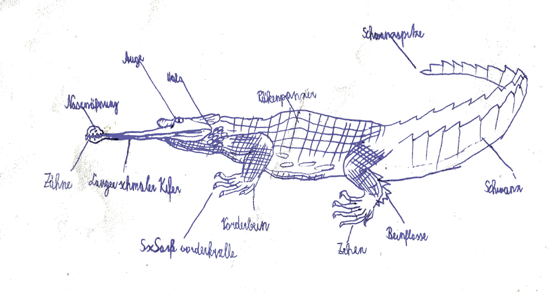 Schwanzspitze
Auge
Hals
Nasenöffnung
Rükenpanzer
Zähne
Langer schmaler Kifer
Schwanz
Vorderbein
5x Scharf vorderkralle
Zehen
Beinflosse